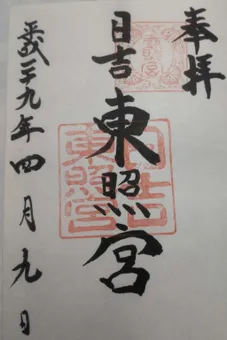 奉拝
日吉東照宮
平成二十九年四月九日
日吉
東照宮